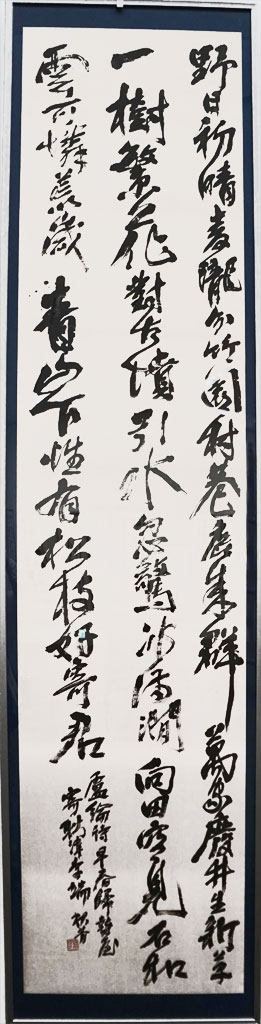 野日初晴麥隴分竹園村巷鹿成群萬家廢井生新草
一樹繁花對古墳引水忽驚冰滿澗向田空見石和
雲可憐荒歲青山下惟有松枝好寄君
盧綸詩早春歸盩厔
寄耿湋李端